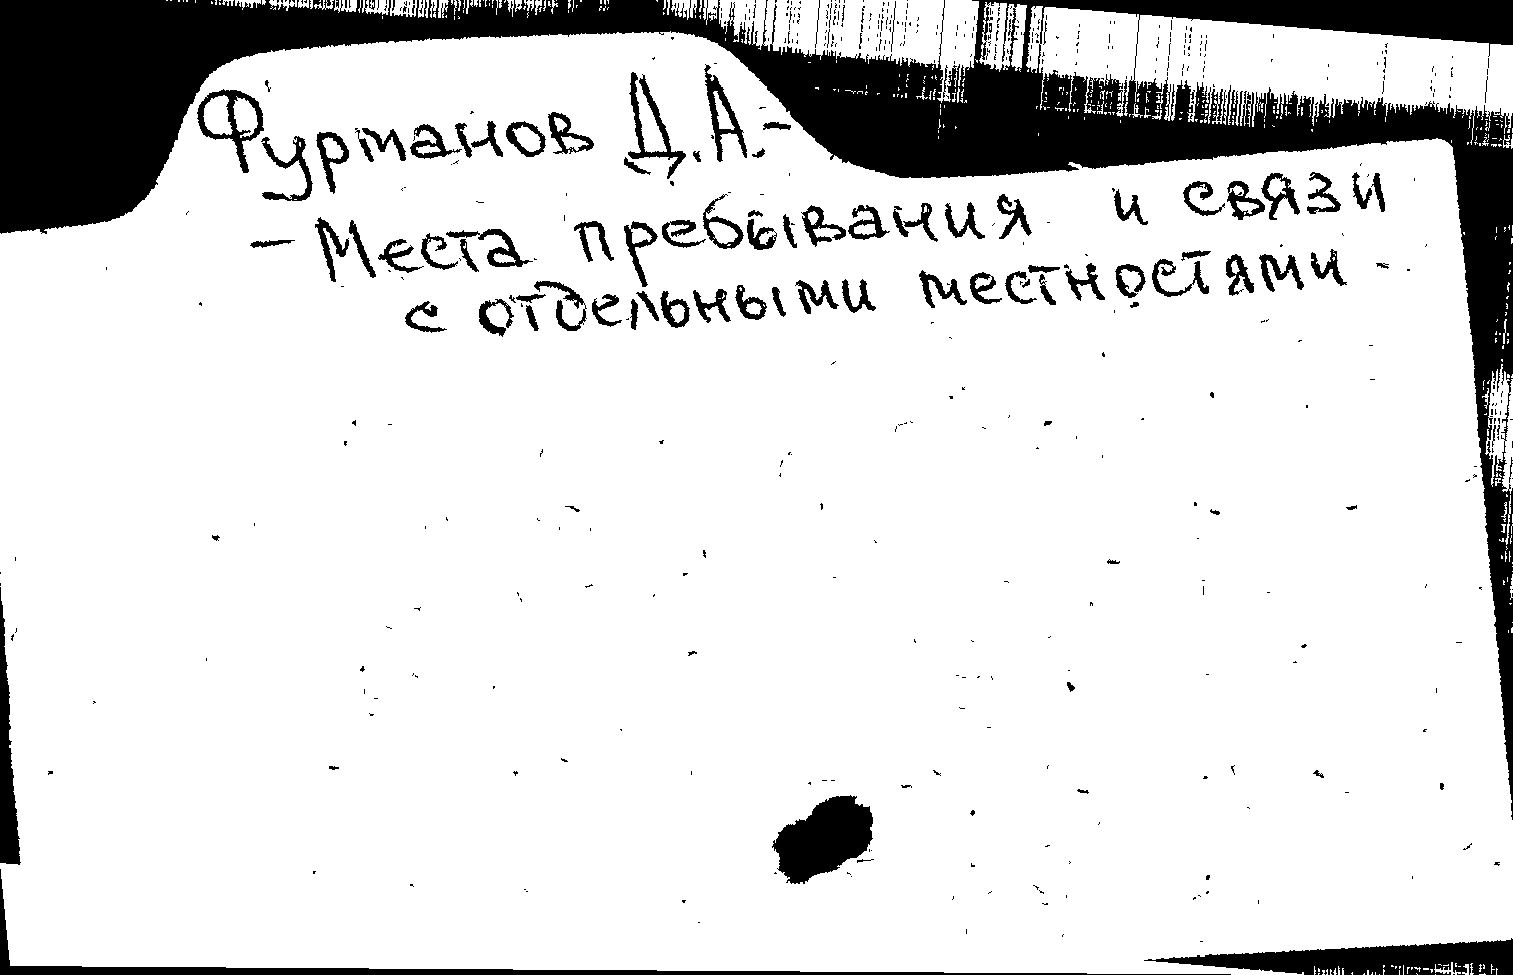 Фурманов Д.А.-
- Места пребывания и связи
с отдельными местностями -